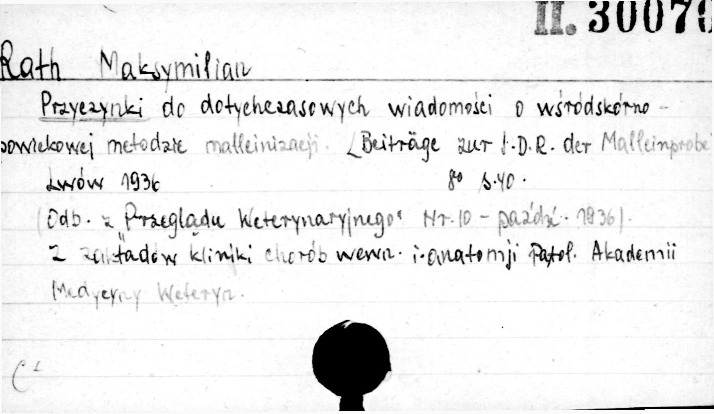 II. 30070
Rath Maksymilian
Przyczynki do dotychczasowych wiadomości o wśródskórno-
powiekowej metodzie malleinizacji. (Beiträge zur I.D.R. der Malleinprobe
Lwów 1936 8º s.40.
(Odb. z "Przeglądu Weterynaryjnego" Nr.10 - paźdź. 1936).
Z zakładów kliniki chorób wewn. i anatomji Patol. Akademii
Medycyny Weteryn.